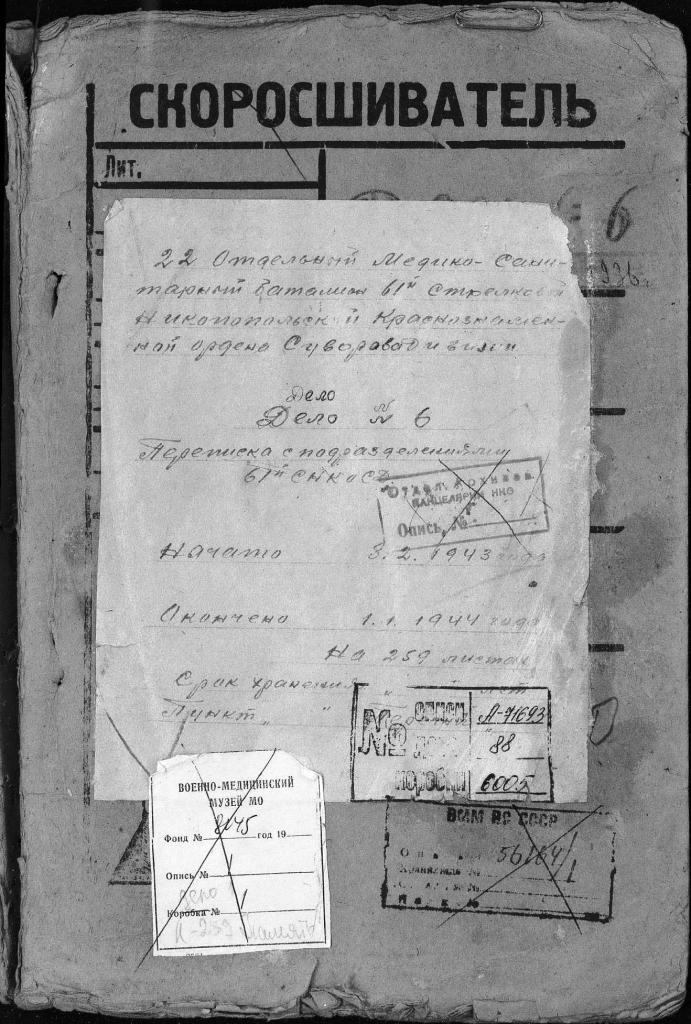 СКОРОСШИВАТЕЛЬ
Лит.
6
1936г.
22 Отдельный Медико-Сани-
тарный баталион 61й Стрелковой
Никопопольской Краснознамен-
ной ордена Суворова Дивизии
Дело
Дело № 6
Переписка с подразделениями
61й
Отдел Архивов
КАНЦЕЛЯРИИ НКО
Опись №
Начато 3.2.1943 года
Окончено 1.1.1944 года
На 259 листах
Срок хранения „ " лет
Пункт „ "
№ описи А-71693
дела 88
коробки 6005
ВОЕННО-МЕДИЦИНСКИЙ
МУЗЕЙ МО
Фонд № 8145 год 19
Опись № 1
дело
Коробка № 1
А-259 Память
ВММ ВС СССР
56164/1